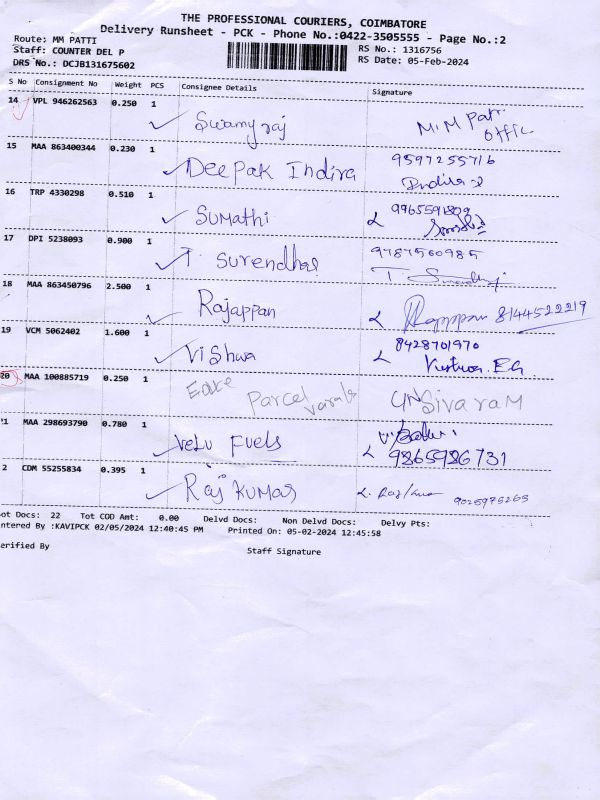 THE PROFESSIONAL COURIERS, COIMBATORE
Delivery Runsheet - PCK - Phone No.:0422-3505555 - Page No.:2
Route: MM PATTI
RS No.: 1316756
Staff: COUNTER DEL P
RS Date: 05-Feb-2024
DRS No.: DCJB131675602
S No Consignment No Weight PCS Consignee Details Signature
14 VPL 946262563 0.250 1 Swamyraj M.M Patti Office
15 MAA 863400344 0.230 1 Deepak Indira 9597255716
Indira
16 TRP 4330298 0.510 1 Sumathi
17 DPI 5238093 0.900 1 T. Surendhas 9787560985
18 MAA 863450796 2.500 1 Rajappan Rajappan 8144522219
19 VCM 5062402 1.600 1 Vishwa 8428701970
20 MAA 100885719 0.250 1 Parcel Sivaram
21 MAA 298693790 0.780 1 Velu Fuels
9865986731
2 CDM 55255834 0.395 1 Raj Kumar 9025975265
ot Docs: 22 Tot COD Amt: 0.00 Delvd Docs: Non Delvd Docs: Delvy Pts:
ntered By :KAVIPCK 02/05/2024 12:40:45 PM Printed On: 05-02-2024 12:45:58
erified By Staff Signature